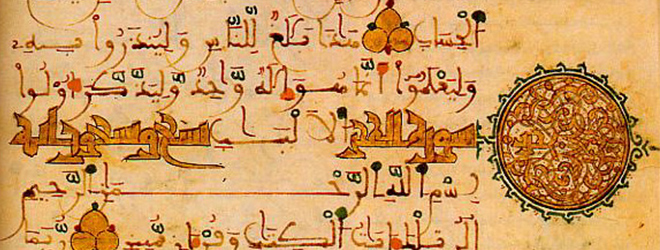 الحساب هذا بلغ للناس ولينذروا به
وليعلموا أنما هو إله وحد وليذكر أولوا
سورة الحجر الالبب تسع وتسعون اية
بسم الله الرحمن الرحيم
الر تلك ايت الكتب وقرءان مبين ربما